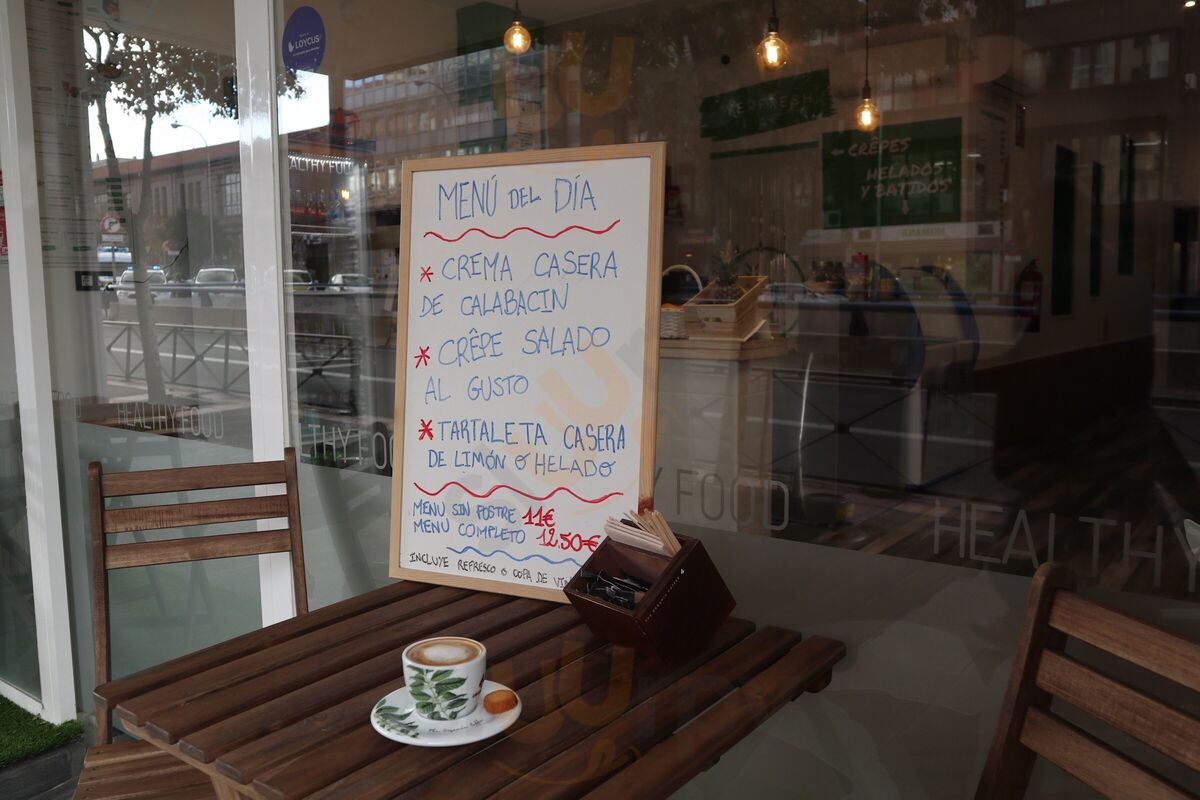 LOYCUS
HEALTHY FOOD
VERFRESH
CRÊPES
HELADOS
Y BATIDOS
MENÚ DEL DÍA
* CREMA CASERA
DE CALABACIN
* CRÊPE SALADO
AL GUSTO
* TARTALETA CASERA
DE LIMÓN O HELADO
MENU SIN POSTRE 11€
MENU COMPLETO 12,50€
INCLUYE REFRESCO O COPA DE VIN
HEALTHY FOOD
THY FOO
FOOD
HEALTHY